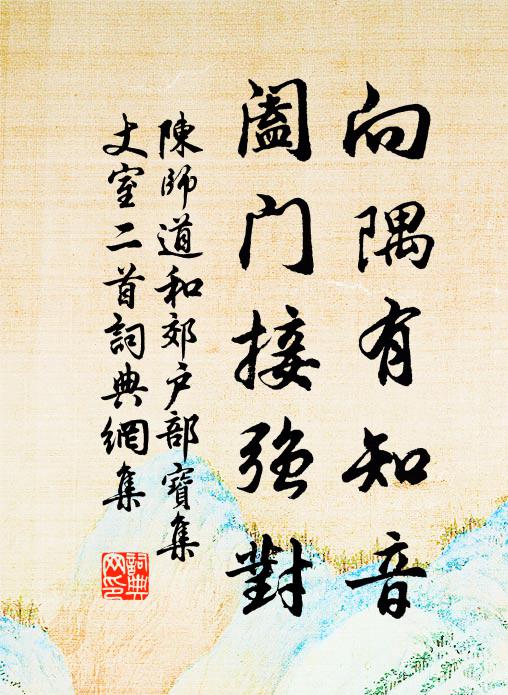 向隅有知音
阖门接强對
陳師道和郊户部寶集
丈室二首詞典網集
詞典
网印